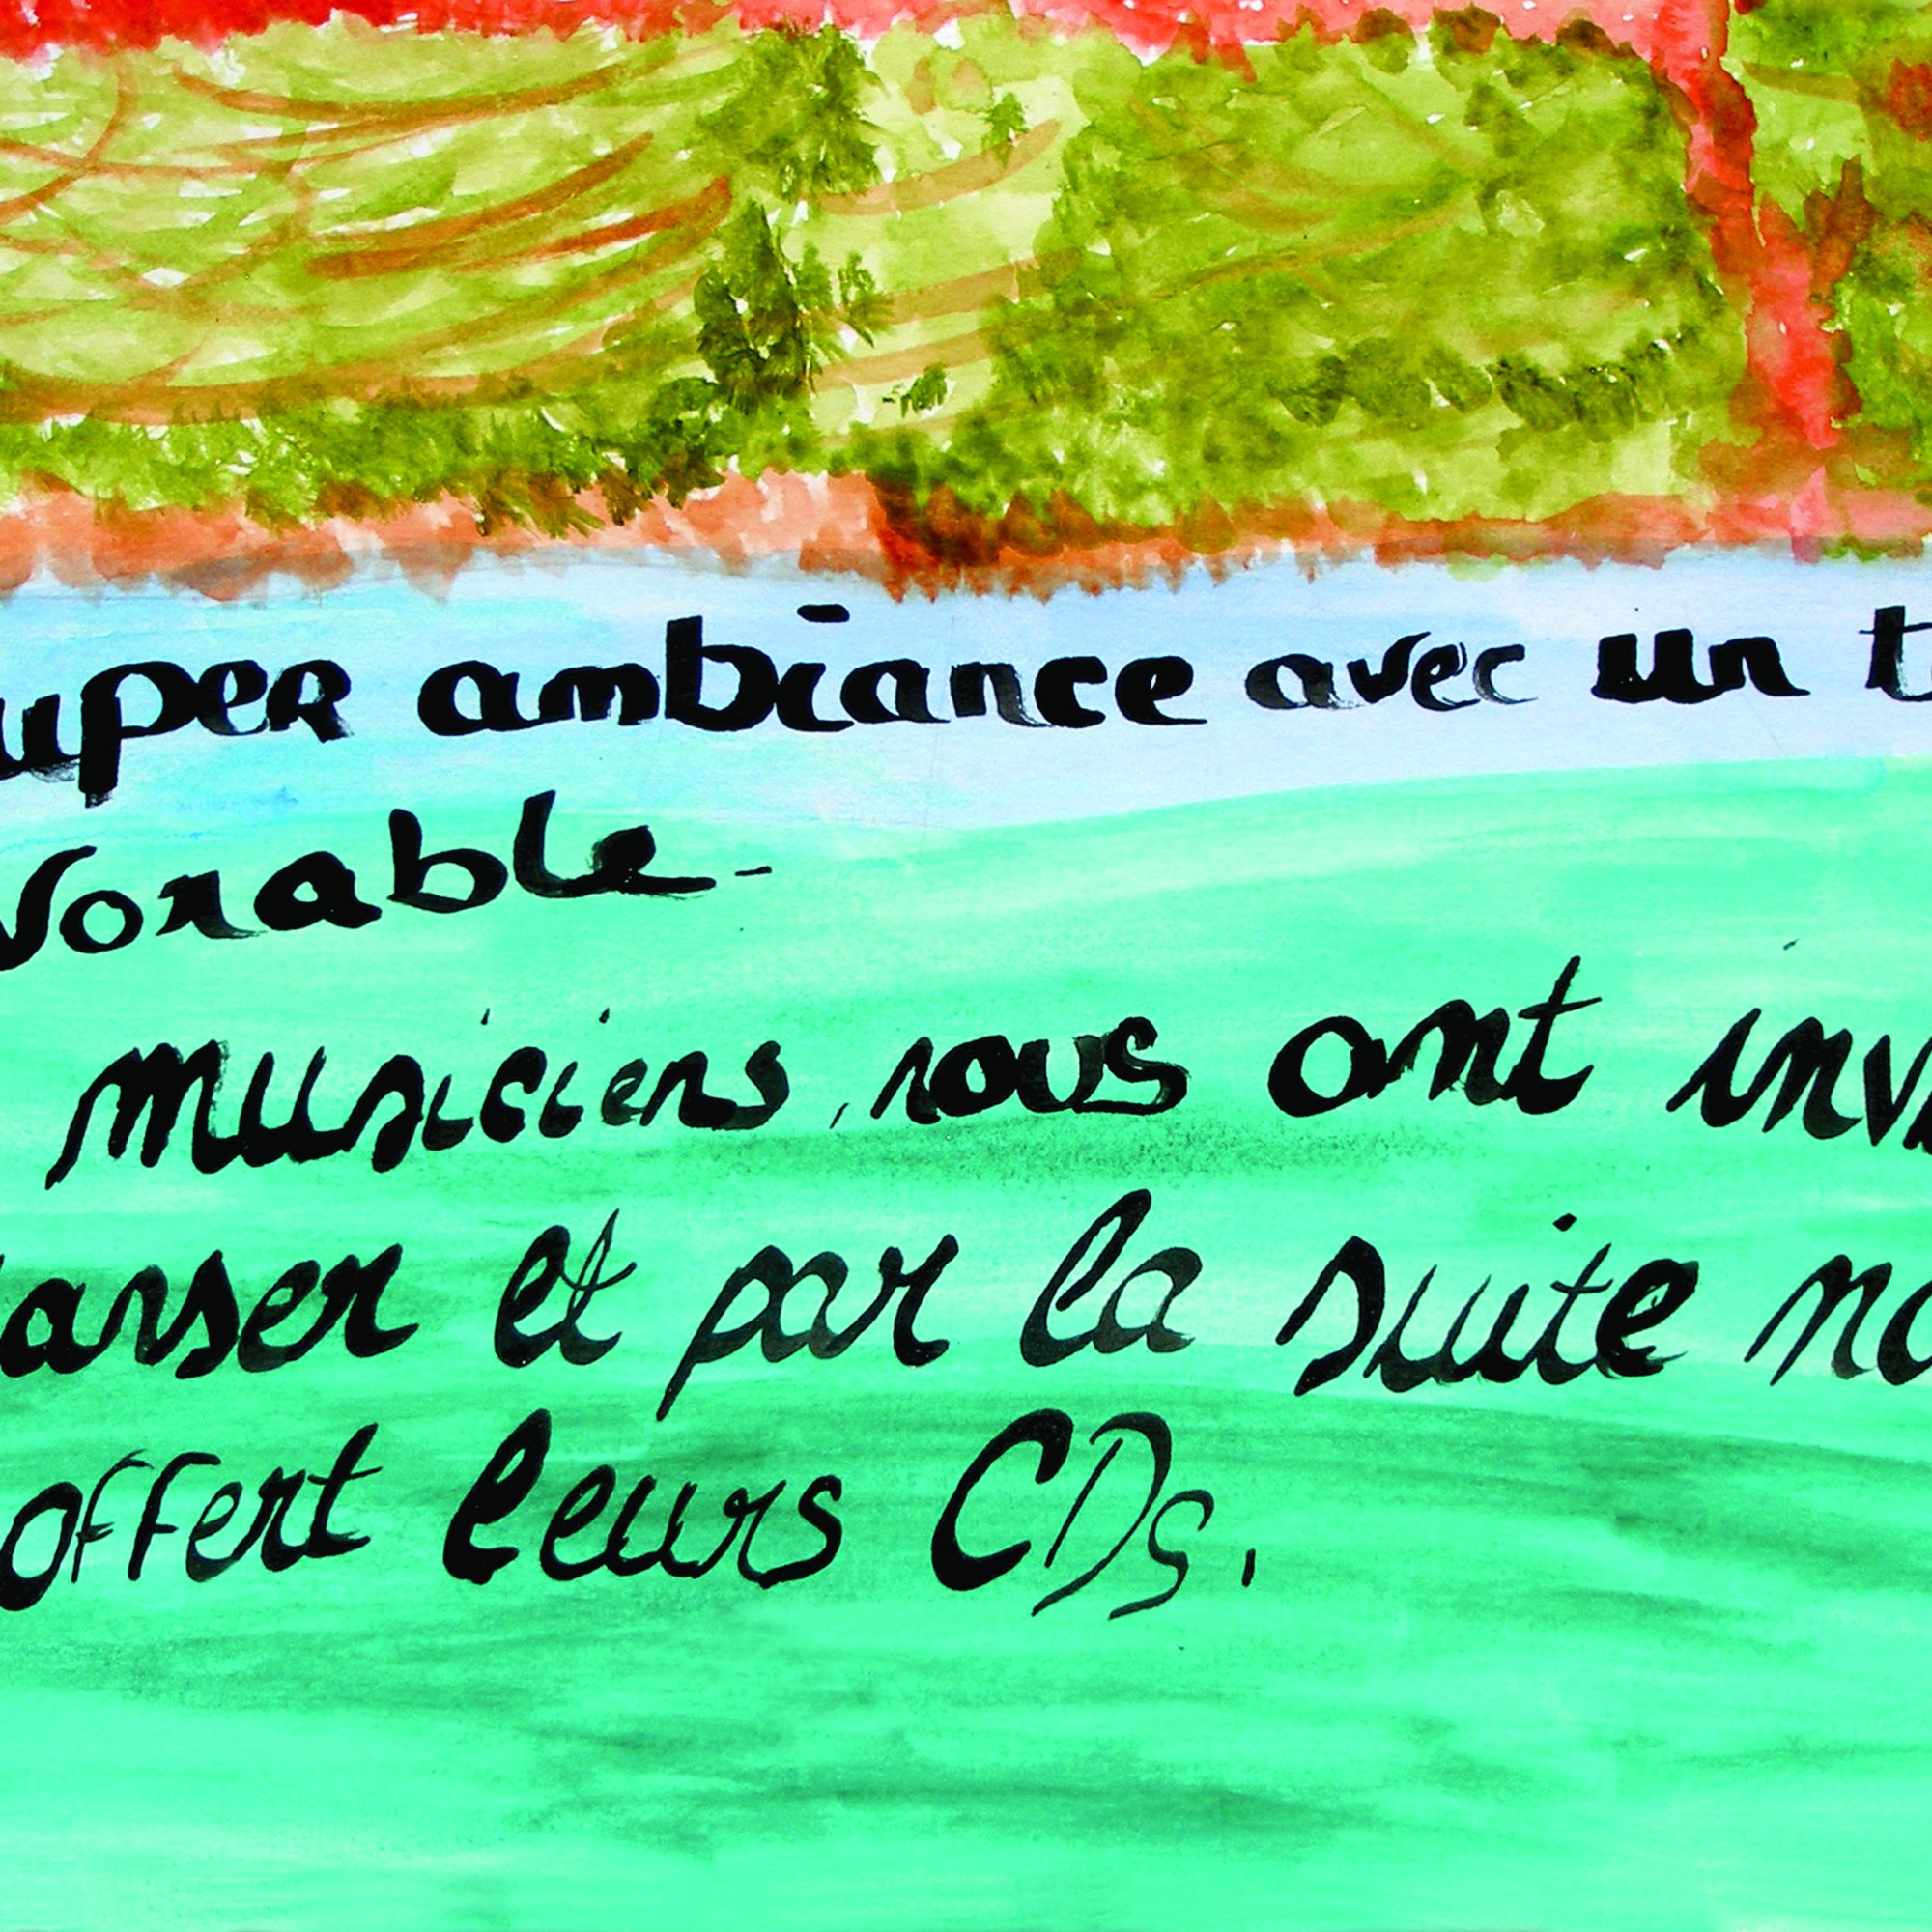 uper ambiance avec un t
vorable-
musiciens, nous ont inv
anser et par la suite no
offert leurs CDs.